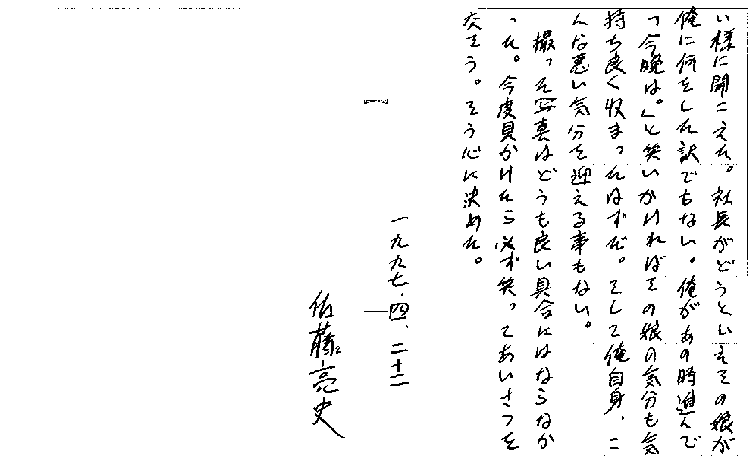 い様に聞こえた。社長がどうといえその娘が
俺に何をした訳でもない。俺があの時進んで
「今晩は。」と笑いかければその娘の気分も気
持ち良く収まったはずだ。そして俺自身、こ
んな悪い気分を迎える事もない。
撮った写真はどうも良い具合にはならなか
った。今度見かけたら必ず笑ってあいさつを
交そう。そう心に決めた。
一九九七・四、二十二
佐藤亮史